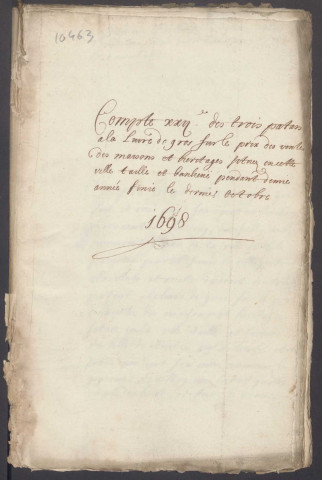 16463
Compte xxij.e des trois patars
a la Livre de gros sur le prix des ventes
des maisons et heritages scituez en cette
ville taille et banlieue pendant demie
année finie le dernier octobre
1698